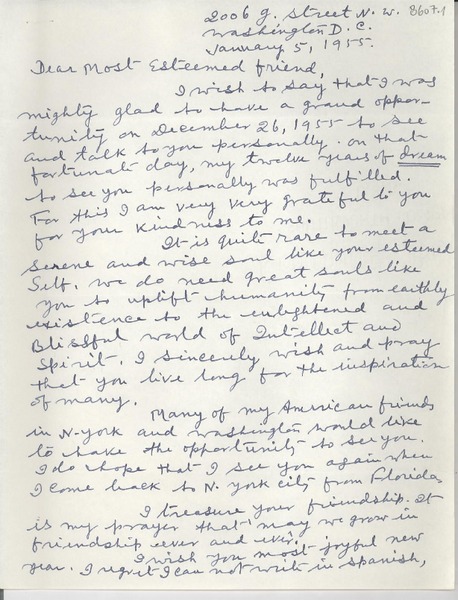 2006 G. Street N. W. 8607.1
Washington D. C.
January 5, 1955.
Dear Most Esteemed friend,
I wish to say that I was
mighty glad to have a grand oppor-
tunity on December 26, 1955 to see
and talk to you personally. On that
fortunate day, my twelve years of dream
to see you personally was fulfilled.
For this I am very very grateful to you
for your kindness to me.
It is quite rare to meet a
serene and wise soul like your esteemed
self. We do need great souls like
you to uplift humanity from earthly
existence to the enlightened and
Blissful world of Intellect and
Spirit. I sincerely wish and pray
that you live long for the inspiration
of many.
Many of my American friends
in N-York and Washington would like
to have the opportunity to see you.
I do hope that I see you again when
I come back to N. York City from Florida.
I treasure your friendship. It
is my prayer that may we grow in
friendship ever and ever.
I wish you most joyful new
year. I regret I can not write in Spanish,